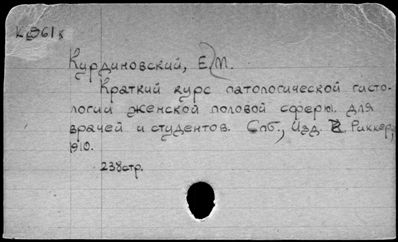 Курдиновский, Е. М.
Краткий курс патологической гисто-
логии женской половой сферы. для
врачей и студентов. Спб., Изд. Риккер,
1910.
238стр.